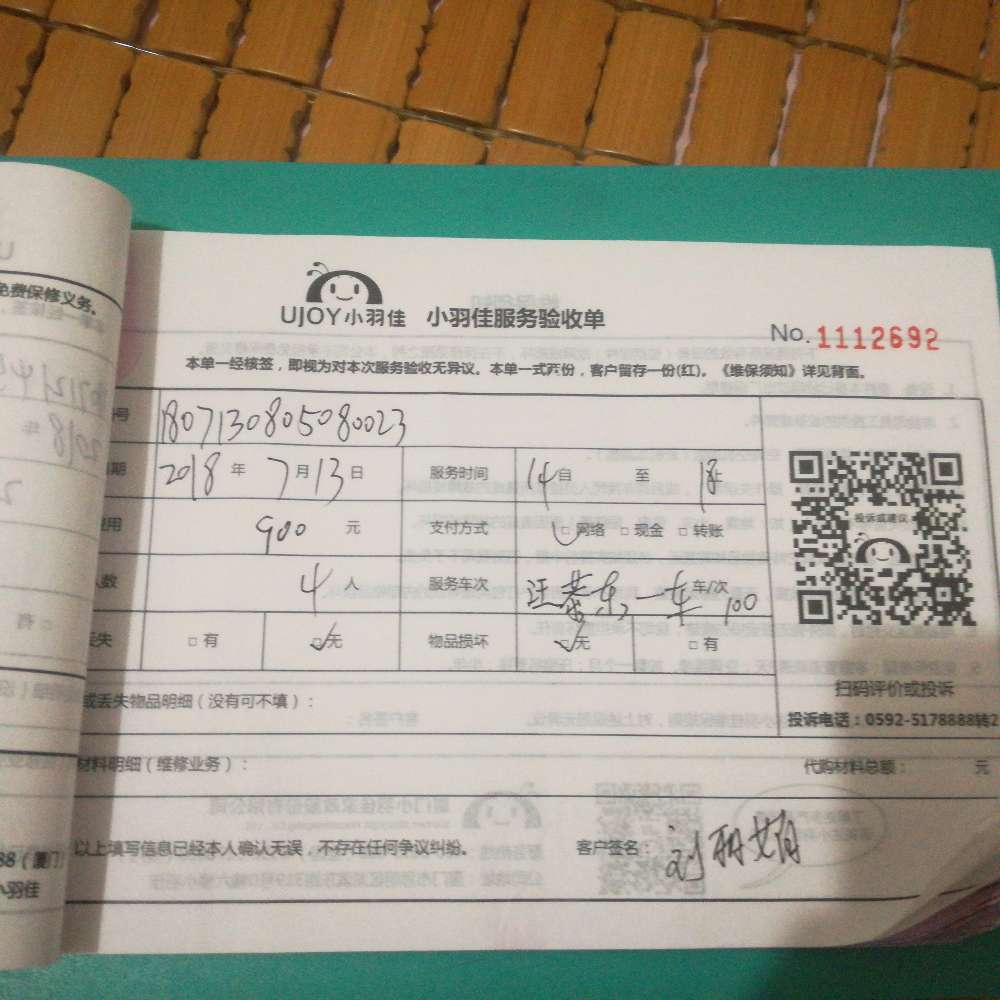 免费保修义务。
UJOY小羽佳 小羽佳服务验收单
No. 1112692
本单一经核签，即视为对本次服务验收无异议。本单一式两份，客户留存一份(红)。《维保须知》详见背面。
号 1807130805080023
期 2018 年 7 月 13 日 服务时间 14 自 至 18 止
用 900 元 支付方式 □ 网络 □ 现金 □ 转账
投诉或建议
人数 4 人 服务车次 一车 车/次 100
丢失 □ 有 □ 无 物品损坏 □ 无 □ 有
扫码评价或投诉
或丢失物品明细（没有可不填）：
投诉电话：0592-5178888转2
材料明细（维修业务）： 代购材料总额： 元
以上填写信息已经本人确认无误，不存在任何争议纠纷。 客户签名：
88（厦门）
小羽佳